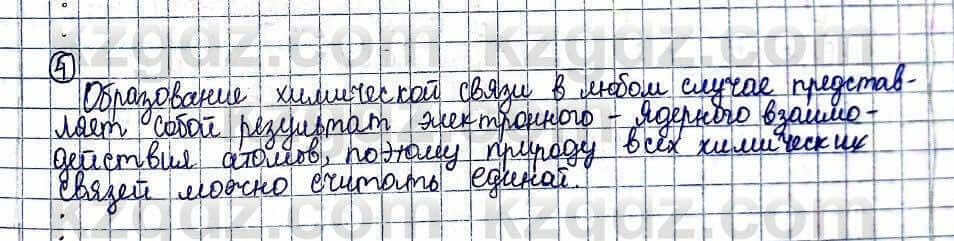 5
Образование химической связи в любом случае представ-
ляет собой результат электронного - ядерного взаимо-
действия атомов, поэтому природу всех химических
связей можно считать единай.